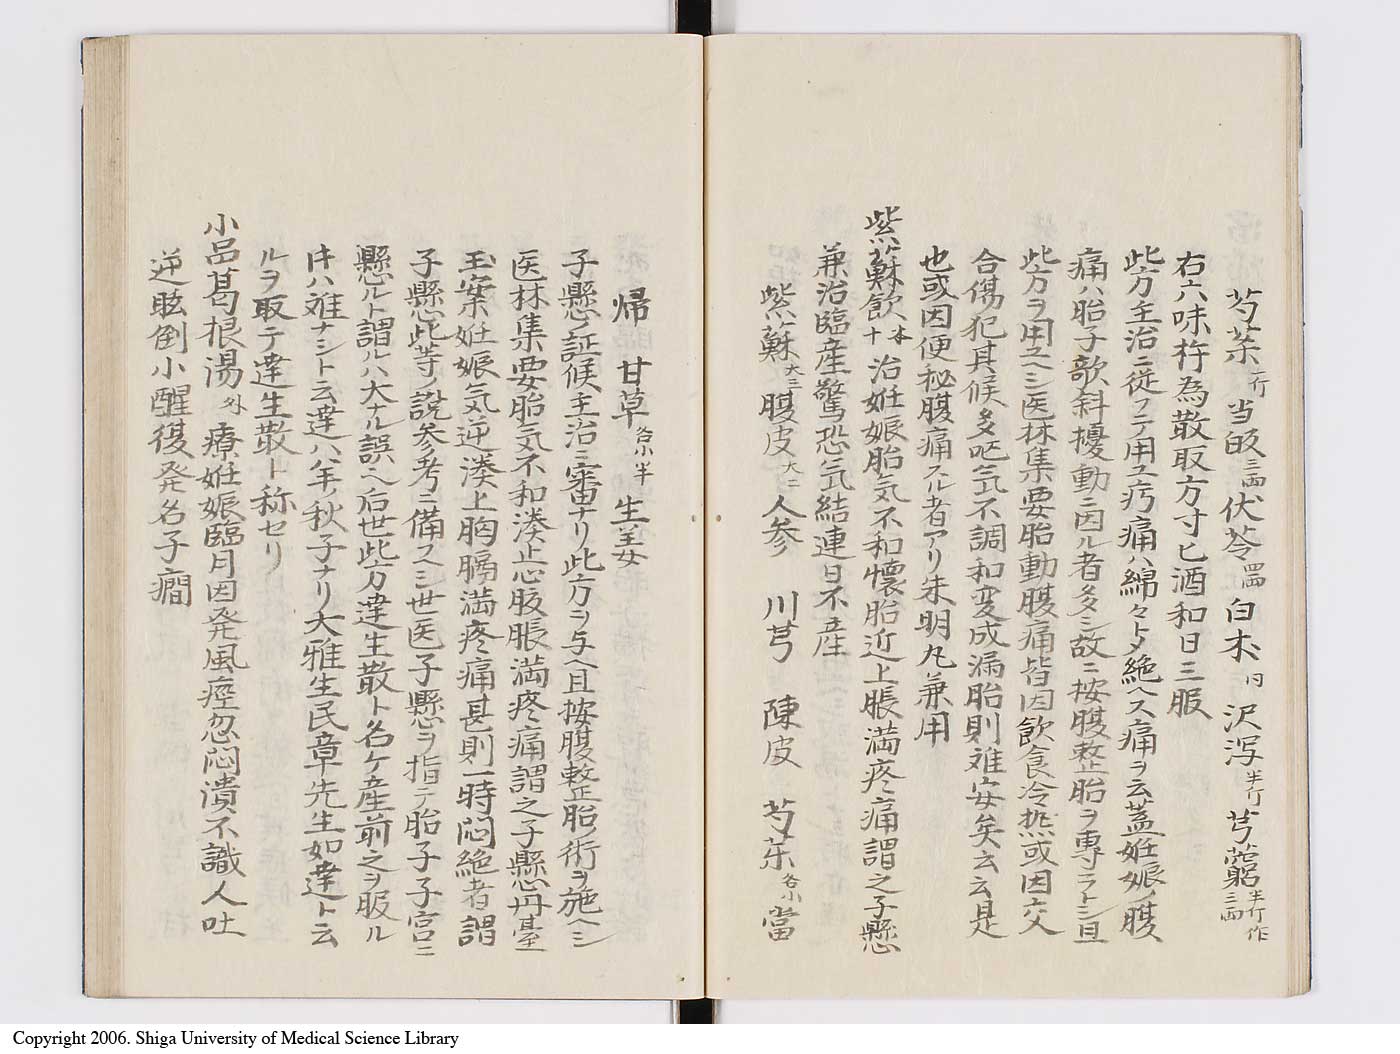 芍薬一斤 当皈三両 伏苓四両 白朮同 沢瀉半斤 芎藭半斤一作三両
右六味杵為散取方寸匕酒和日三服
此方主治ニ従フテ用ユ㽲痛ハ綿々トメ絶ヘス痛ヲ云蓋妊娠ノ腹
痛ハ胎子欹斜擾動ニ因ル者多シ故ニ按腹整胎ヲ専ラトシ且
此方ヲ用ユヘシ医林集要胎動腹痛皆因飲食冷熱或因交
合傷犯其候多呃気不調和変成漏胎則难安矣云云是
也或因便秘腹痛スル者アリ朱明丸兼用
紫蘇飲本十 治妊娠胎気不和懐胎近上脹満疼痛謂之子懸
兼治臨産驚恐気結連日不産
紫蘇大二 腹皮大二 人参 川芎 陳皮 芍薬各小 當
帰 甘草各小半 生姜
子懸ノ証候主治ニ審ナリ此方ヲ与ヘ且按腹整胎ノ術ヲ施ヘシ
医林集要胎気不和湊上心腹脹満疼痛謂之子懸丹臺
玉案妊娠気逆湊上胸膈満疼痛甚則一時悶絶者謂
子懸此等ノ説参考ニ備フヘシ世医子懸ヲ指テ胎子子宮ニ
懸ルト謂ルハ大ナル誤ヘ后世此方達生散ト名ケ産前之ヲ服ル
片ハ难ナシト云達ハ羊ノ秋子ナリ大雅生民章先生如達ト云
ルヲ取テ達生散ト称セリ
小品葛根湯外 療妊娠臨月因発風痙忽悶潰不識人吐
逆眩倒小醒復発名子癇
Copyright 2006. Shiga University of Medical Science Library